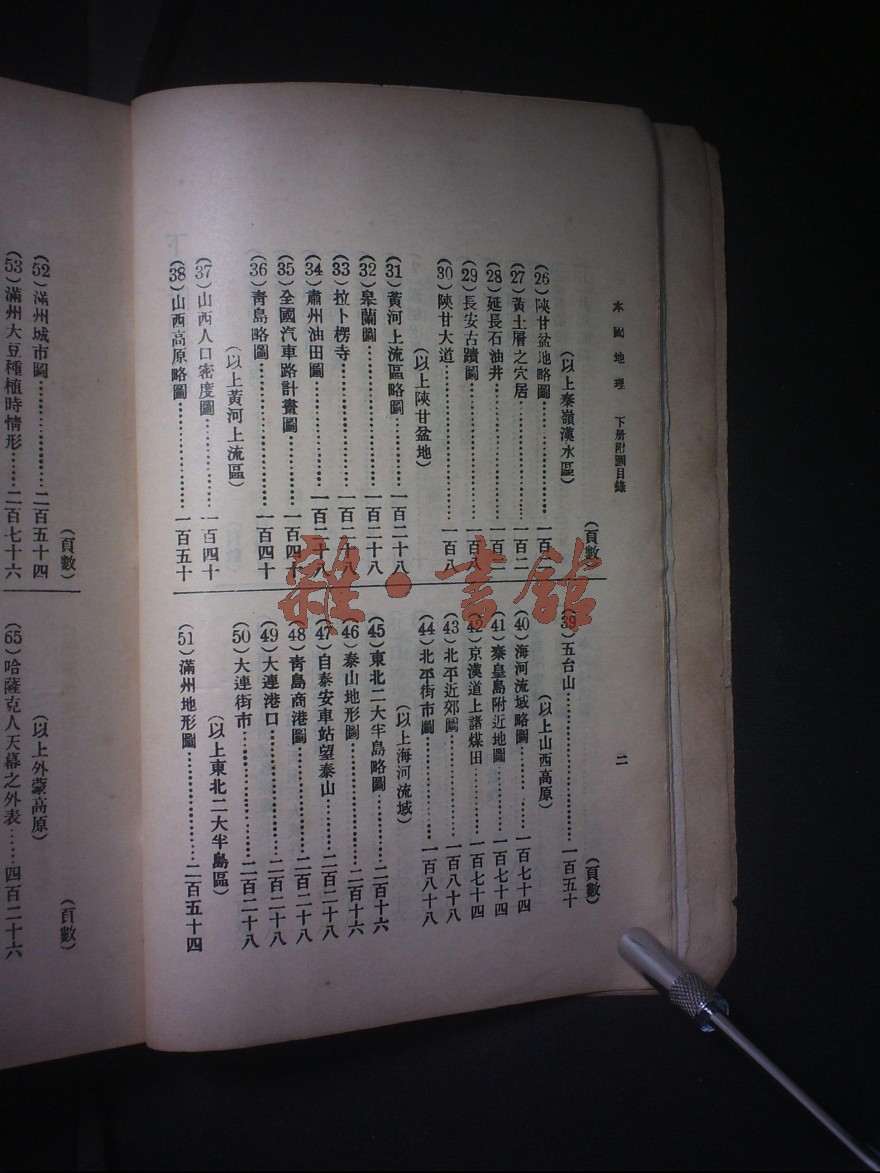 本國地理 下册附圖目錄 二
(頁數)
(以上秦嶺漢水區)
(26)陝甘盆地略圖……一百
(27)黃土層之穴居……一百二
(28)延長石油井……一百
(29)長安古蹟圖……一百八
(30)陝甘大道……一百八
(以上陝甘盆地)
(31)黃河上流區略圖……一百二十八
(32)皋蘭圖……一百二十八
(33)拉卜楞寺……一百二十八
(34)肅州油田圖……一百二十八
(35)全國汽車路計畫圖……一百四十
(36)青島略圖……一百四十
(以上黃河上流區)
(37)山西人口密度圖……一百四十
(38)山西高原略圖……一百五十
(頁數)
(39)五台山……一百五十
(以上山西高原)
(40)海河流域略圖……一百七十四
(41)秦皇島附近地圖……一百七十四
(42)京漢道上諸煤田……一百七十四
(43)北平近郊圖……一百八十八
(44)北平街市圖……一百八十八
(以上海河流域)
(45)東北二大半島略圖……二百十六
(46)泰山地形圖……二百十六
(47)自泰安車站望泰山……二百二十八
(48)青島商港圖……二百二十八
(49)大連港口……二百二十八
(50)大連街市……二百二十八
(以上東北二大半島區)
(51)滿州地形圖……二百五十四
(頁數)
(52)滿州城市圖……二百五十四
(53)滿州大豆種植時情形……二百七十六
(頁數)
(以上外蒙高原)
(65)哈薩克人天幕之外表……四百二十六
雜·書館